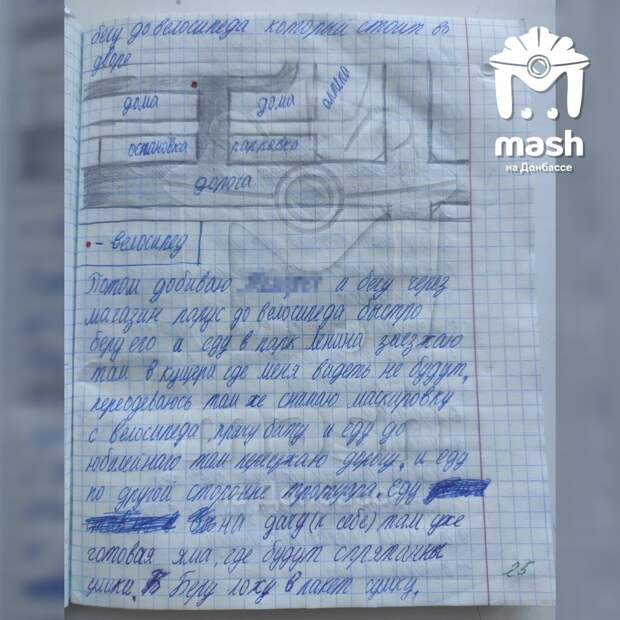 бегу до велосипеда который стоит во
дворе
mash
на Донбассе
дома
дома
аллика
остановка
парковка
дорога
- велосипед
Потом добиваю и бегу через
магазин парус до велосипеда быстро
беру его и еду в парк Ленина заезжаю
там в кущера где меня видеть не будут.
переодеваюсь там же снимаю маскировку
с велосипеда, прячу биту и еду до
юбилейного там переезжаю дорогу. и еду
по другой стороне тротуара. еду
на дачу(к себе) там уже
готовая яма, где будут спрятаны
улики. Беру лоху в пакет сумку.
25